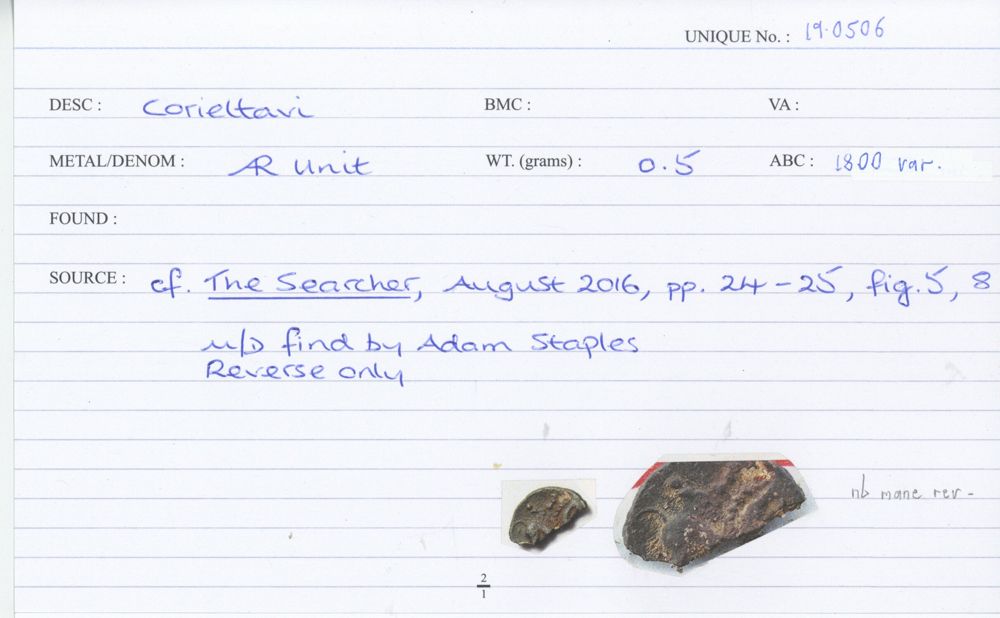 UNIQUE No. : 19.0506
DESC : Corieltavi BMC : VA :
METAL/DENOM : AR Unit WT. (grams) : 0.5 ABC : 1800 var.
FOUND :
SOURCE : cf. The Searcher, August 2016, pp. 24-25, fig. 5, 8
m/D find by Adam Staples
Reverse only
nb mane rev -
2
1